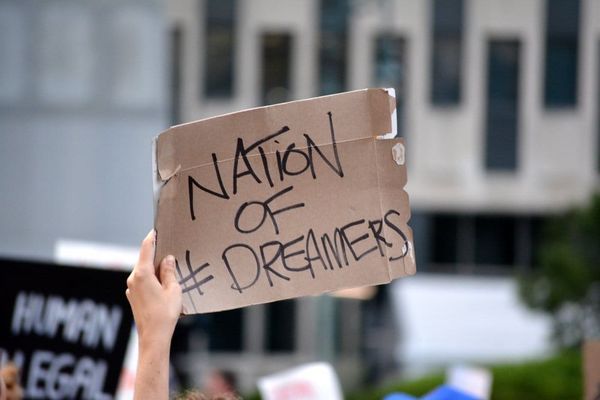 NATION
OF
#DREAMERS
HUMAN
LEGAL